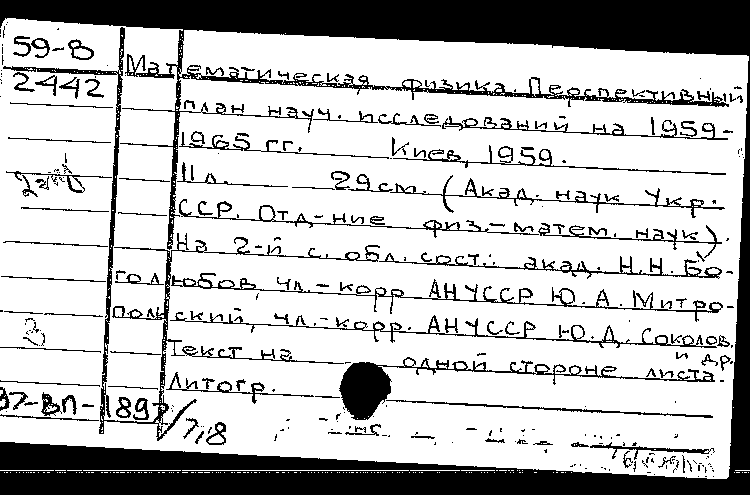 59-В
2442
Математическая физика. Перспективный
план науч. исследований на 1959-
1965 гг. Киев, 1959.
11 л. 29 см. (Акад. наук Укр.
ССР. Отд-ние физ.-матем. наук).
На 2-й с. обл. сост.: акад. Н.Н. Бо-
голюбов, чл.-корр АНУССР Ю.А. Митро-
польский, чл.-корр. АНУССР Ю.Д. Соколов
и др.
Текст на одной стороне листа.
Литогр.
3
97-ВП-1897/7,8